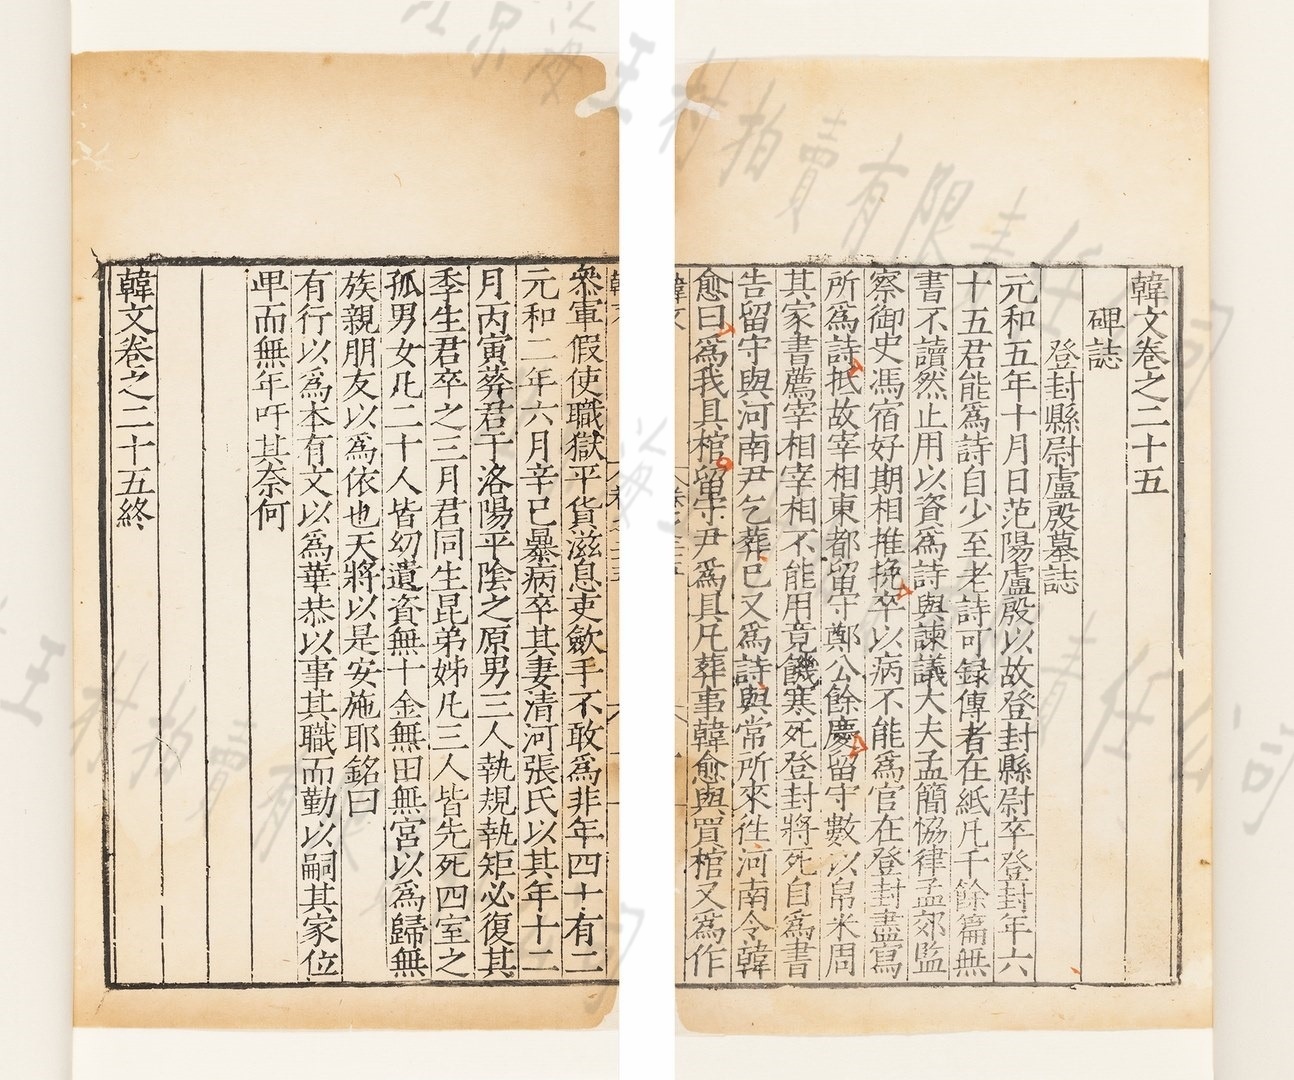 韓文卷之二十五
碑誌
登封縣尉盧殷墓誌
元和五年十月日范陽盧殷以故登封縣尉卒登封年六
十五君能爲詩自少至老詩可録傳者在紙凡千餘篇無
書不讀然止用以資爲詩與諫議大夫孟簡恊律孟郊監
察御史馮宿好期相推挽卒以病不能爲官在登封盡寫
所爲詩抵故宰相東都留守鄭公餘慶留守數以帛米周
其家書薦宰相宰相不能用竟饑寒死登封將死自爲書
告留守與河南尹乞葬已又爲詩與常所來徃河南令韓
愈曰爲我具棺留守尹爲具凡葬事韓愈與買棺又爲作
韓文
卷之二十五
叅軍假使職獄平貨滋息吏斂手不敢爲非年四十有二
元和二年六月辛已暴病卒其妻清河張氏以其年十二
月丙寅葬君于洛陽平陰之原男三人執規執矩必復其
季生君卒之三月君同生昆弟姊凡三人皆先死四室之
孤男女凡二十人皆㓜遺資無十金無田無宮以爲歸無
族親朋友以爲依也天將以是安施耶銘曰
有行以爲本有文以爲華恭以事其職而勤以嗣其家位
卑而無年吁其奈何
韓文卷之二十五終
北京海王村拍賣有限責任公司